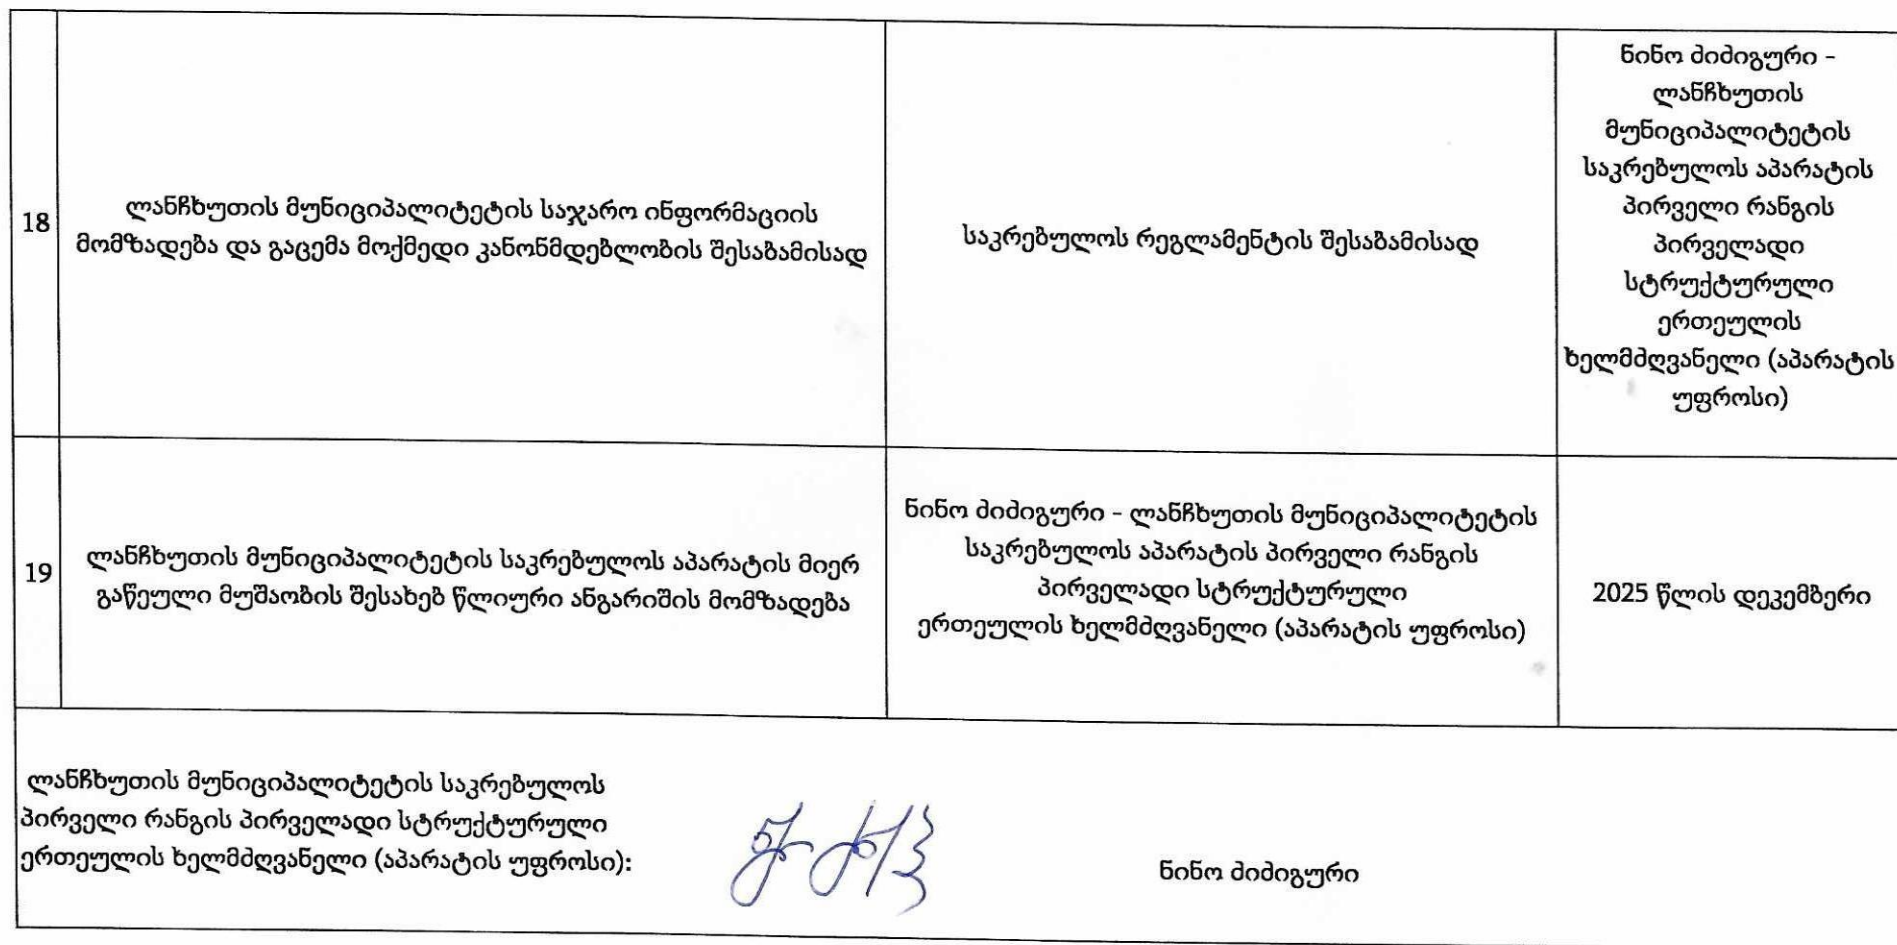 18
ლანჩხუთის მუნიციპალიტეტის საჯარო ინფორმაციის
მომზადება და გაცემა მოქმედი კანონმდებლობის შესაბამისად
საკრებულოს რეგლამენტის შესაბამისად
ნინო ძიძიგური -
ლანჩხუთის
მუნიციპალიტეტის
საკრებულოს აპარატის
პირველი რანგის
პირველადი
სტრუქტურული
ერთეულის
ხელმძღვანელი (აპარატის
უფროსი)
19
ლანჩხუთის მუნიციპალიტეტის საკრებულოს აპარატის მიერ
გაწეული მუშაობის შესახებ წლიური ანგარიშის მომზადება
ნინო ძიძიგური - ლანჩხუთის მუნიციპალიტეტის
საკრებულოს აპარატის პირველი რანგის
პირველადი სტრუქტურული
ერთეულის ხელმძღვანელი (აპარატის უფროსი)
2025 წლის დეკემბერი
ლანჩხუთის მუნიციპალიტეტის საკრებულოს
პირველი რანგის პირველადი სტრუქტურული
ერთეულის ხელმძღვანელი (აპარატის უფროსი):
ნინო ძიძიგური